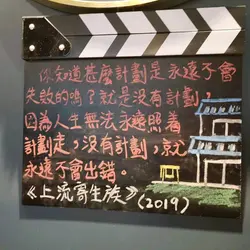 你知道甚麼計劃是永遠不會
失敗的嗎？就是沒有計劃，
因為人生無法永遠照着
計劃走，沒有計劃，就
永遠不會出錯。
《上流寄生族》(2019)